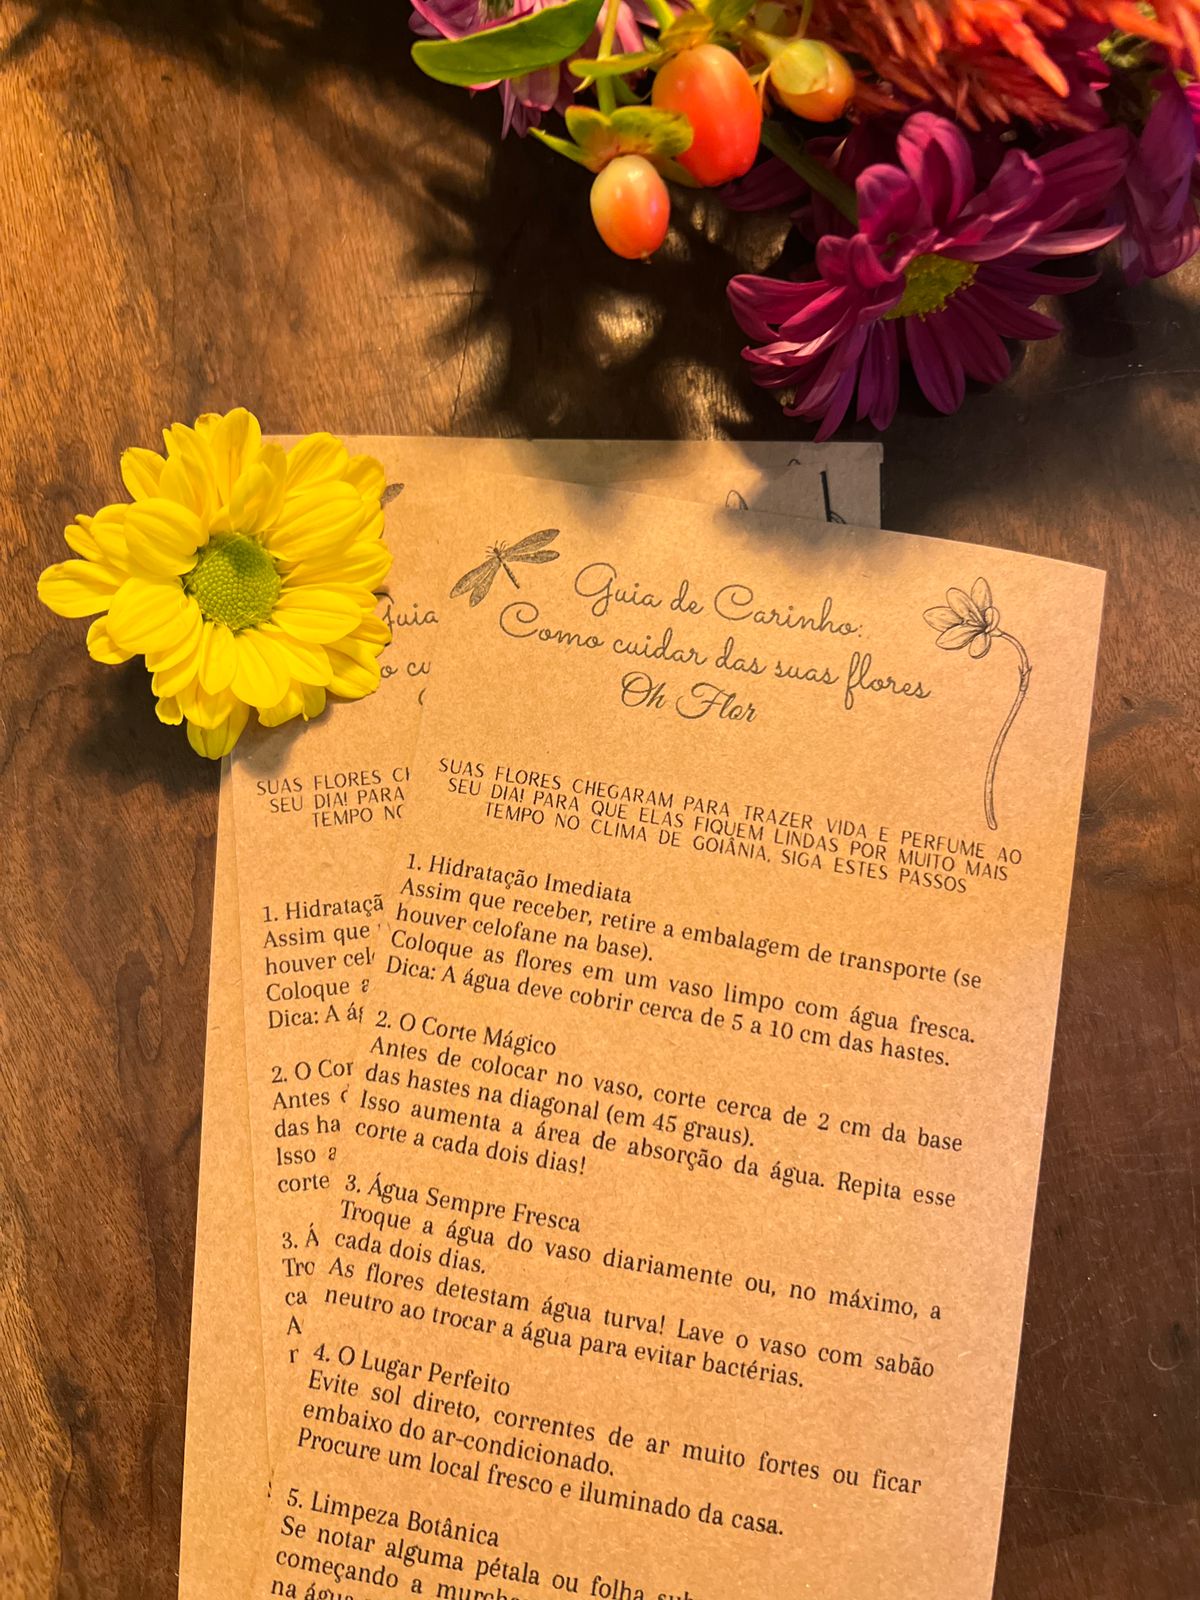 Guia de Carinho:
Como cuidar das suas flores
Oh Flor
SUAS FLORES CHEGARAM PARA TRAZER VIDA E PERFUME AO
SEU DIA! PARA QUE ELAS FIQUEM LINDAS POR MUITO MAIS
TEMPO NO CLIMA DE GOIÂNIA, SIGA ESTES PASSOS
1. Hidratação Imediata
Assim que receber, retire a embalagem de transporte (se
houver celofane na base).
Coloque as flores em um vaso limpo com água fresca.
Dica: A água deve cobrir cerca de 5 a 10 cm das hastes.
2. O Corte Mágico
Antes de colocar no vaso, corte cerca de 2 cm da base
das hastes na diagonal (em 45 graus).
Isso aumenta a área de absorção da água. Repita esse
corte a cada dois dias!
3. Água Sempre Fresca
Troque a água do vaso diariamente ou, no máximo, a
cada dois dias.
As flores detestam água turva! Lave o vaso com sabão
neutro ao trocar a água para evitar bactérias.
4. O Lugar Perfeito
Evite sol direto, correntes de ar muito fortes ou ficar
embaixo do ar-condicionado.
Procure um local fresco e iluminado da casa.
5. Limpeza Botânica
Se notar alguma pétala ou folha
começando a
na água
SUAS FLORES
SEU DIA! PARA
TEMPO
1.
Assim que
houver
Coloque
Dica: A
2. O
Antes
das
Isso
corte
3.